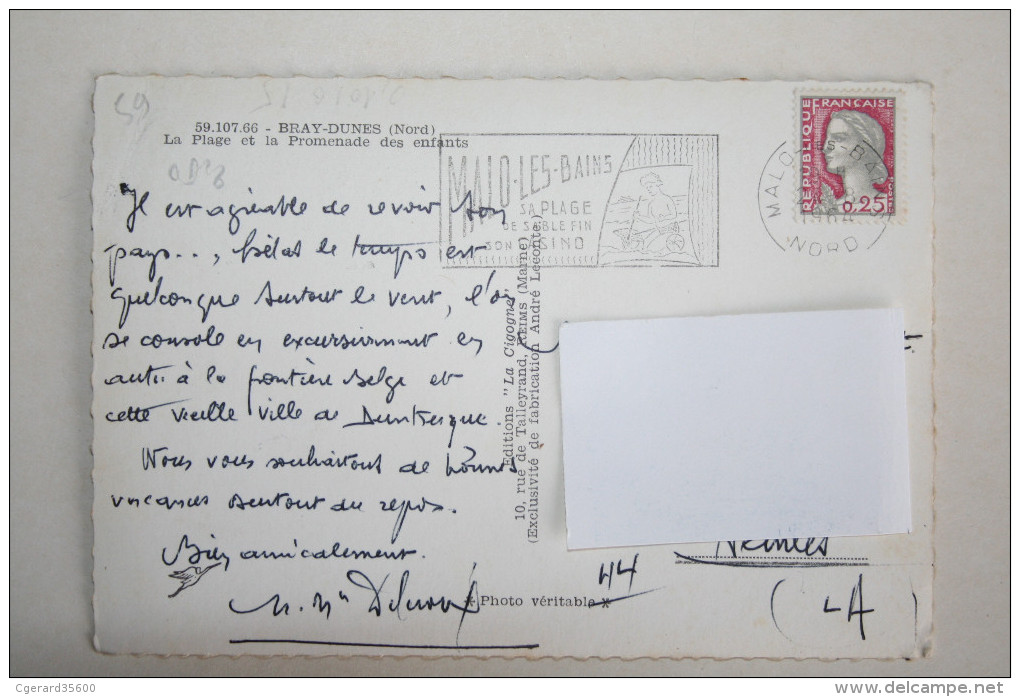 59
59.107.66 - BRAY-DUNES (Nord)
La Plage et la Promenade des enfants
MALO-LES-BAINS
SA PLAGE
DE SABLE FIN
SON CASINO
REPUBLIQUE FRANÇAISE
0,25
MALO-LES-BAINS
1964
NORD
Il est agréable de revoir son
pays..., hélas le temps est
quelconque surtout le vent, l'on
se console en excursionnant en
auto à la frontière belge et
cette vieille ville de Dunkerque.
Nous vous souhaitons de bonnes
vacances surtout du repos.
Bien amicalement.
M. Mme
Editions "La Cigogne"
10, rue de Talleyrand, REIMS (Marne)
(Exclusivité de fabrication André Leconte)
* Photo véritable *
Nantes
44
(LA)
Cgerard35600
delcampe.net